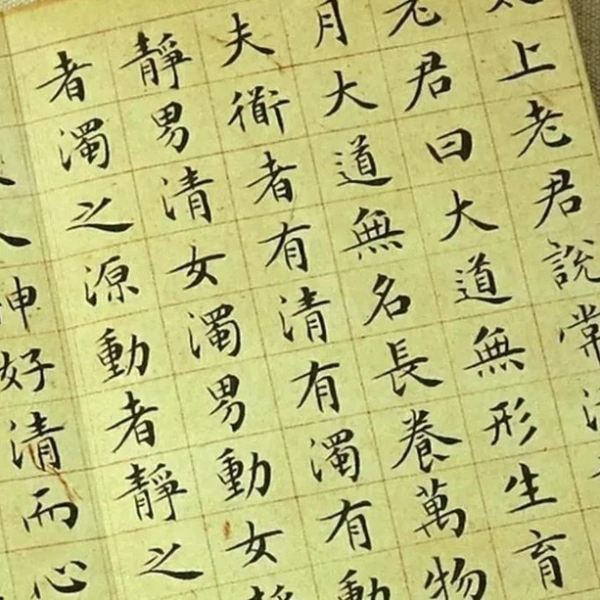 太上老君說常清
老君曰大道無形生育
月大道無名長養萬物
夫衜者有清有濁有動
靜男清女濁男動女靜
者濁之源動者靜之
人神好清而心